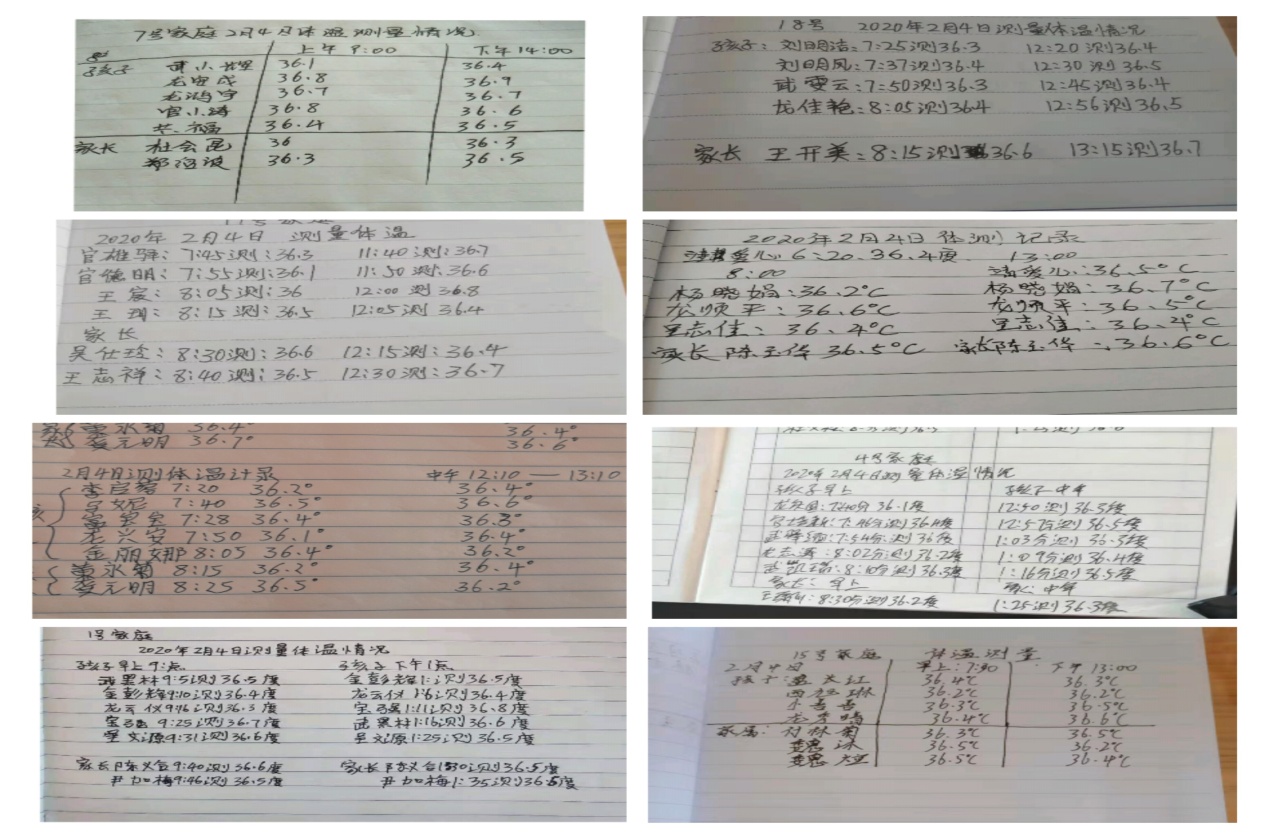 7号家庭2月4日体温测量情况
上午9:00 下午14:00
孩子 36.1 36.4
36.8 36.9
龙鸿宇 36.7 36.7
官小涛 36.8 36.6
36.4 36.5
家长 杜会昆 36 36.3
郑海波 36.3 36.5
18号 2020年2月4日测量体温情况
孩子: 刘明洁:7:25测36.3 12:20测36.4
刘明凤:7:37测36.4 12:30测36.5
武雯云:7:50测36.3 12:45测36.4
龙佳艳:8:05测36.4 12:56测36.5
家长 王开美:8:15测36.6 13:15测36.7
2020年2月4日 测量体温
官雄骅:7:45测:36.3 11:40测:36.7
官德明:7:55测:36.1 11:50测:36.6
王宸:8:05测:36 12:00测36.8
王琪:8:15测:36.5 12:05测36.4
家长
吴仕珍:8:30测:36.6 12:15测:36.4
王志祥:8:40测:36.5 12:30测:36.7
2020年2月4日体测记录
爱心6:20.36.4度. 13:00
8:00 爱心:36.5°C
杨晓娟:36.2°C 杨晓娟:36.7°C
龙顺平:36.6°C 龙顺平:36.5°C
志佳:36.4°C 志佳:36.4°C
家长陈玉华 36.5°C 家长陈玉华:36.6°C
36.4° 36.4°
娄元明 36.7° 36.6°
2月4日测体温计录 中午12:10—13:10
7:20 36.2° 36.4°
7:40 36.5° 36.6°
7:28 36.4° 36.3°
龙兴安 7:50 36.1° 36.4°
金丽娜 8:05 36.4° 36.2°
8:15 36.2° 36.4°
娄元明 8:25 36.5° 36.2°
4号家庭
2020年2月4日测量体温情况
孩子早上 孩子中午
7:40分36.1度 12:50测36.5度
7:46分测36.4度 12:57分测36.5度
7:54分测36度 1:03分测36.3度
8:02分测36.2度 1:09分测36.4度
8:10分测36.3度 1:16分测36.5度
家长:早上 家长:中午
8:30分测36.2度 1:25测36.3度
1号家庭
2020年2月4日测量体温情况
孩子早上9:点 孩子下午1点
武黑林9:5测36.5度 金彭辉1:测36.5度
金彭辉9:10测36.4度 龙云仪1:6测36.4度
龙云仪9:16测36.3度 1:11测36.8度
9:25测36.7度 武黑林1:16测36.6度
吴文源9:31测36.6度 吴文源1:25测36.5度
家长陈义台9:40测36.6度 家长陈义台1:30测36.5度
尹加梅9:46测36.5度 尹加梅1:35测36.5度
15号家庭 体温测量
2月4日 早上:7:30 下午13:00
孩子: 36.4℃ 36.3℃
36.2℃ 36.2℃
36.3℃ 36.5℃
36.4℃ 36.6℃
家属: 村林菊 36.3℃ 36.5℃
36.5℃ 36.2℃
36.5℃ 36.4℃